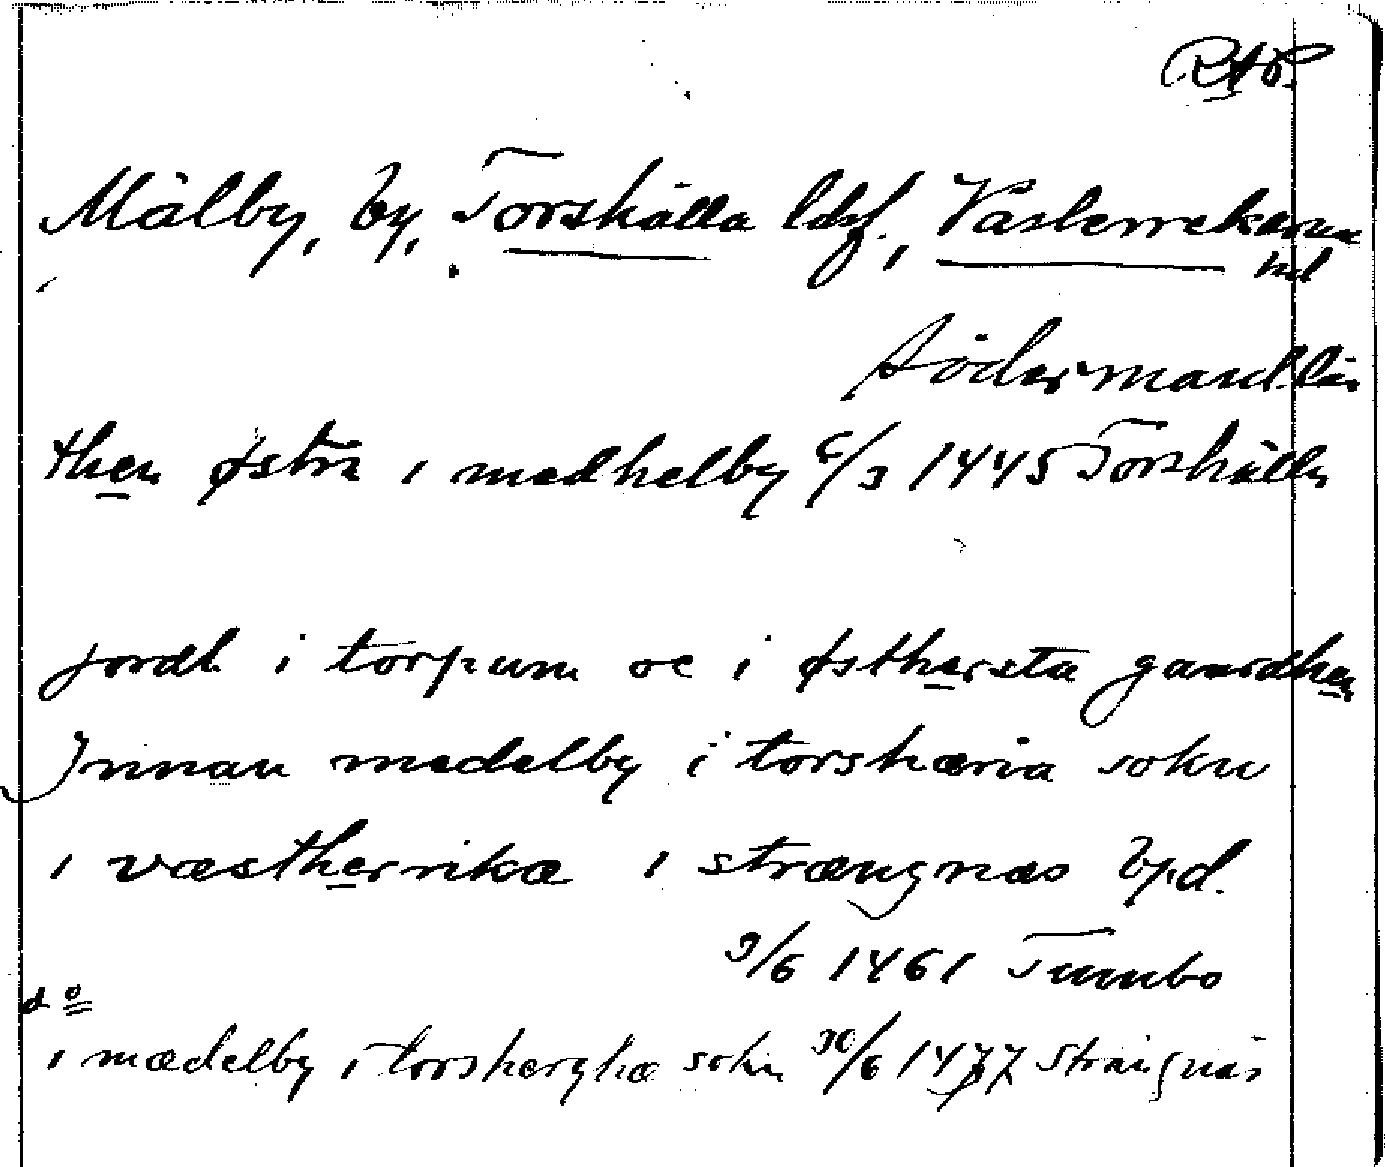 RAP.
Mälby, by, Torshälla ldsf., Västerrekarne
hd
Södermanl. län
then østra i medhelby 6/3 1445 Torshälla
jordh i torpum oc i østhersta gaardhen
Innan medelby i torshæria sokn
i væstherrikæ i strængnæs bp.d.
3/6 1461 Tumbo
do
i mædelby i torsherghæ sokn 30/6 1477 Strängnäs